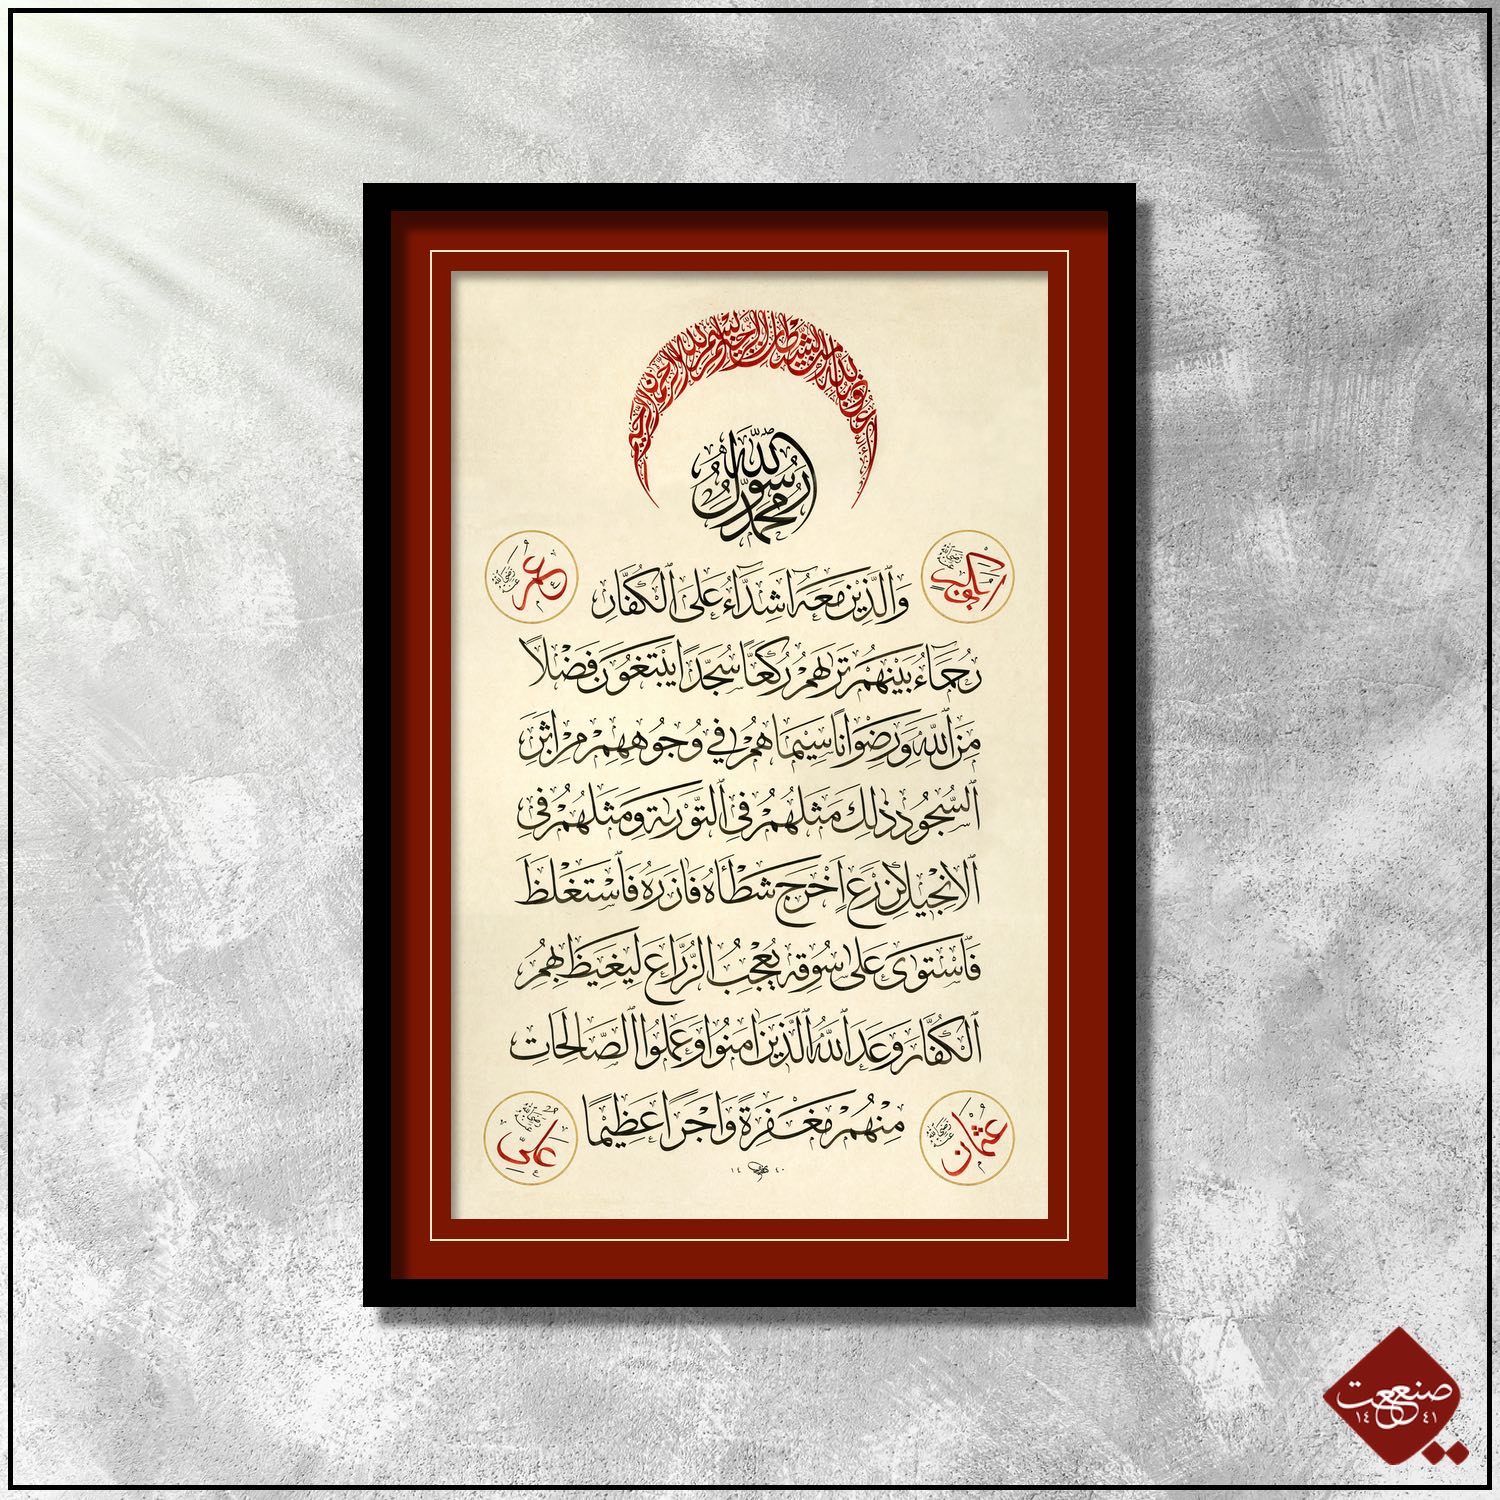 اعوذ بالله من الشيطان الرجيم بسم الله الرحمن الرحيم
محمد رسول الله
ابوبكر رضی الله عنه
عمر رضی الله عنه
وَالَّذِينَ مَعَهُ اَشِدَّآءُ عَلَى الْكُفَّارِ
رُحَمَآءُ بَيْنَهُمْ تَرٰيهُمْ رُكَّعًا سُجَّدًا يَبْتَغُونَ فَضْلًا
مِنَ اللّٰهِ وَرِضْوَانًا سِيمَاهُمْ فِي وُجُوهِهِمْ مِنْ اَثَرِ
السُّجُودِ ذٰلِكَ مَثَلُهُمْ فِي التَّوْرٰيةِ وَمَثَلُهُمْ فِي
الْاِنْجِيلِ كَزَرْعٍ اَخْرَجَ شَطْأَهُ فَاٰزَرَهُ فَاسْتَغْلَظَ
فَاسْتَوٰى عَلٰى سُوقِهِ يُعْجِبُ الزُّرَّاعَ لِيَغِيظَ بِهِمُ
الْكُفَّارَ وَعَدَ اللّٰهُ الَّذِينَ اٰمَنُوا وَعَمِلُوا الصَّالِحَاتِ
مِنْهُمْ مَغْفِرَةً وَاَجْرًا عَظِيمًا
عثمان رضی الله عنه
علی رضی الله عنه
١٤٤٠
صنعت
١٤٤١